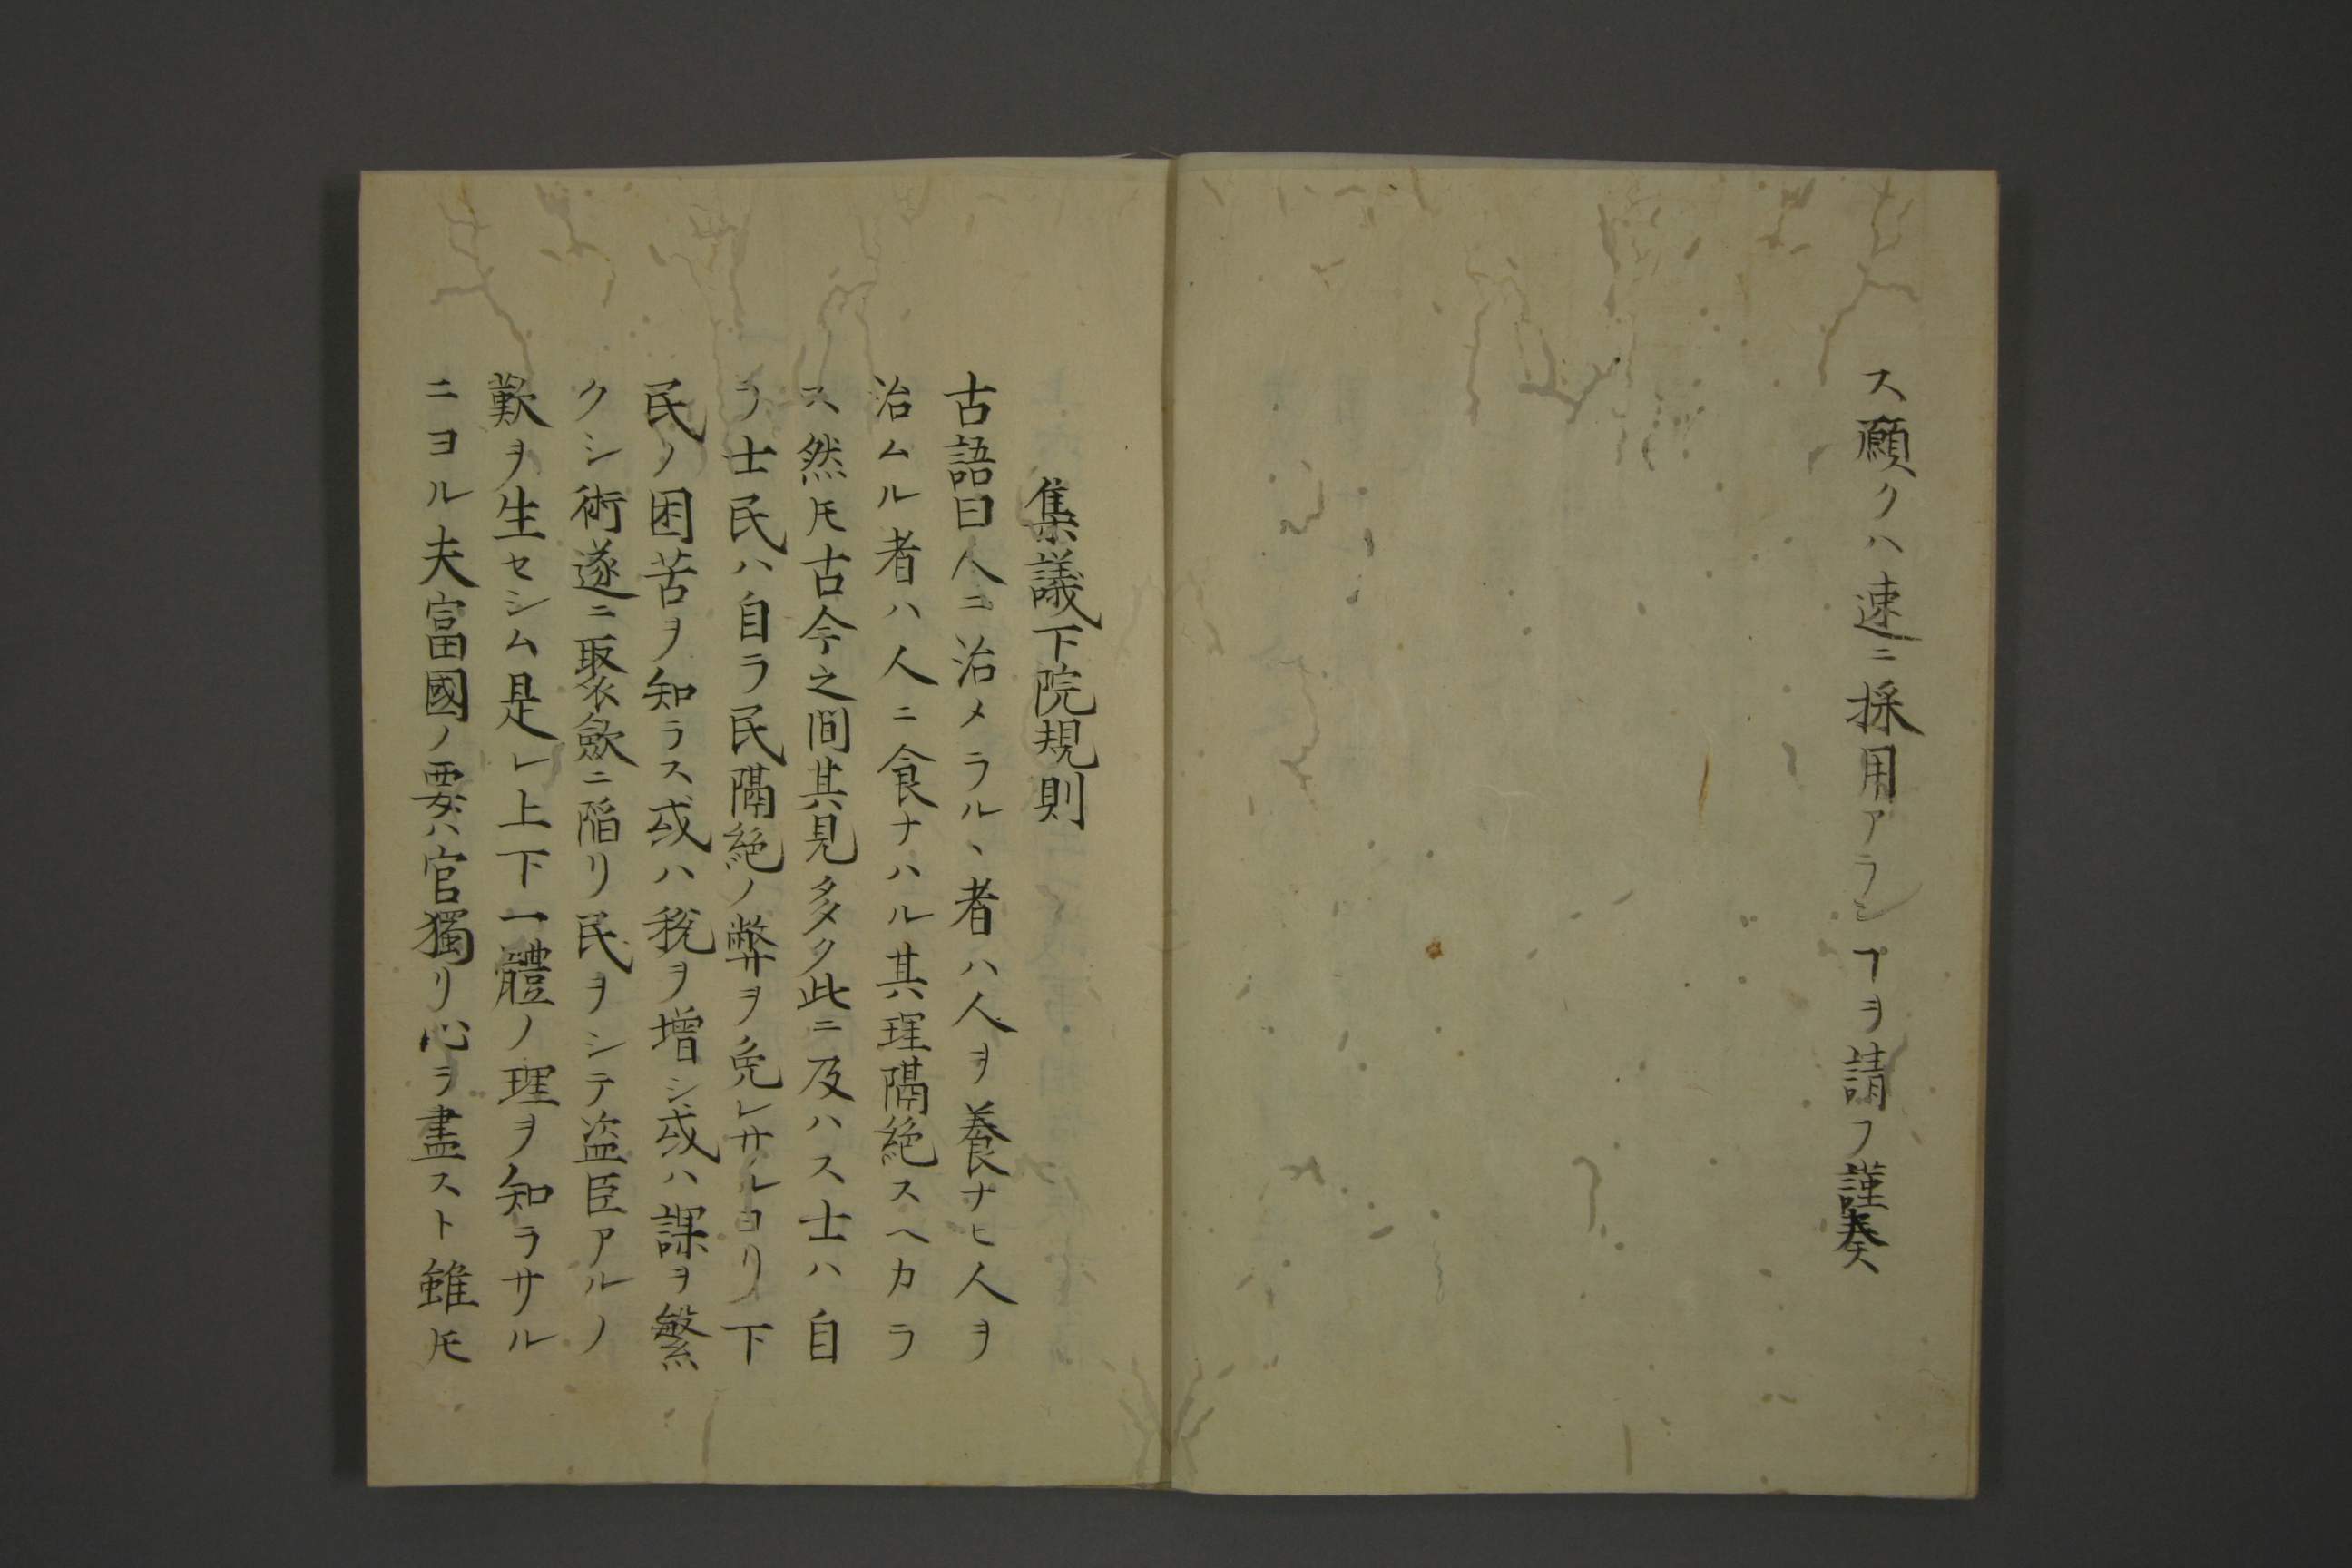 ス願クハ速ニ採用アランヿヲ請フ謹奏
集議下院規則
古語曰人ニ治メラルヽ者ハ人ヲ養ナヒ人ヲ
治ムル者ハ人ニ食ナハル其理隔絶スヘカラ
ス然𪜈古今之間其見多ク此ニ及ハス士ハ自
ラ士民ハ自ラ民隔絶ノ弊ヲ免レサルヨリ下
民ノ困苦ヲ知ラス或ハ税ヲ増シ或ハ課ヲ繁
クシ術遂ニ聚歛ニ陥リ民ヲシテ盗臣アルノ
歎ヲ生セシム是レ上下一體ノ理ヲ知ラサル
ニヨル夫富國ノ要ハ官獨リ心ラ盡スト雖𪜈